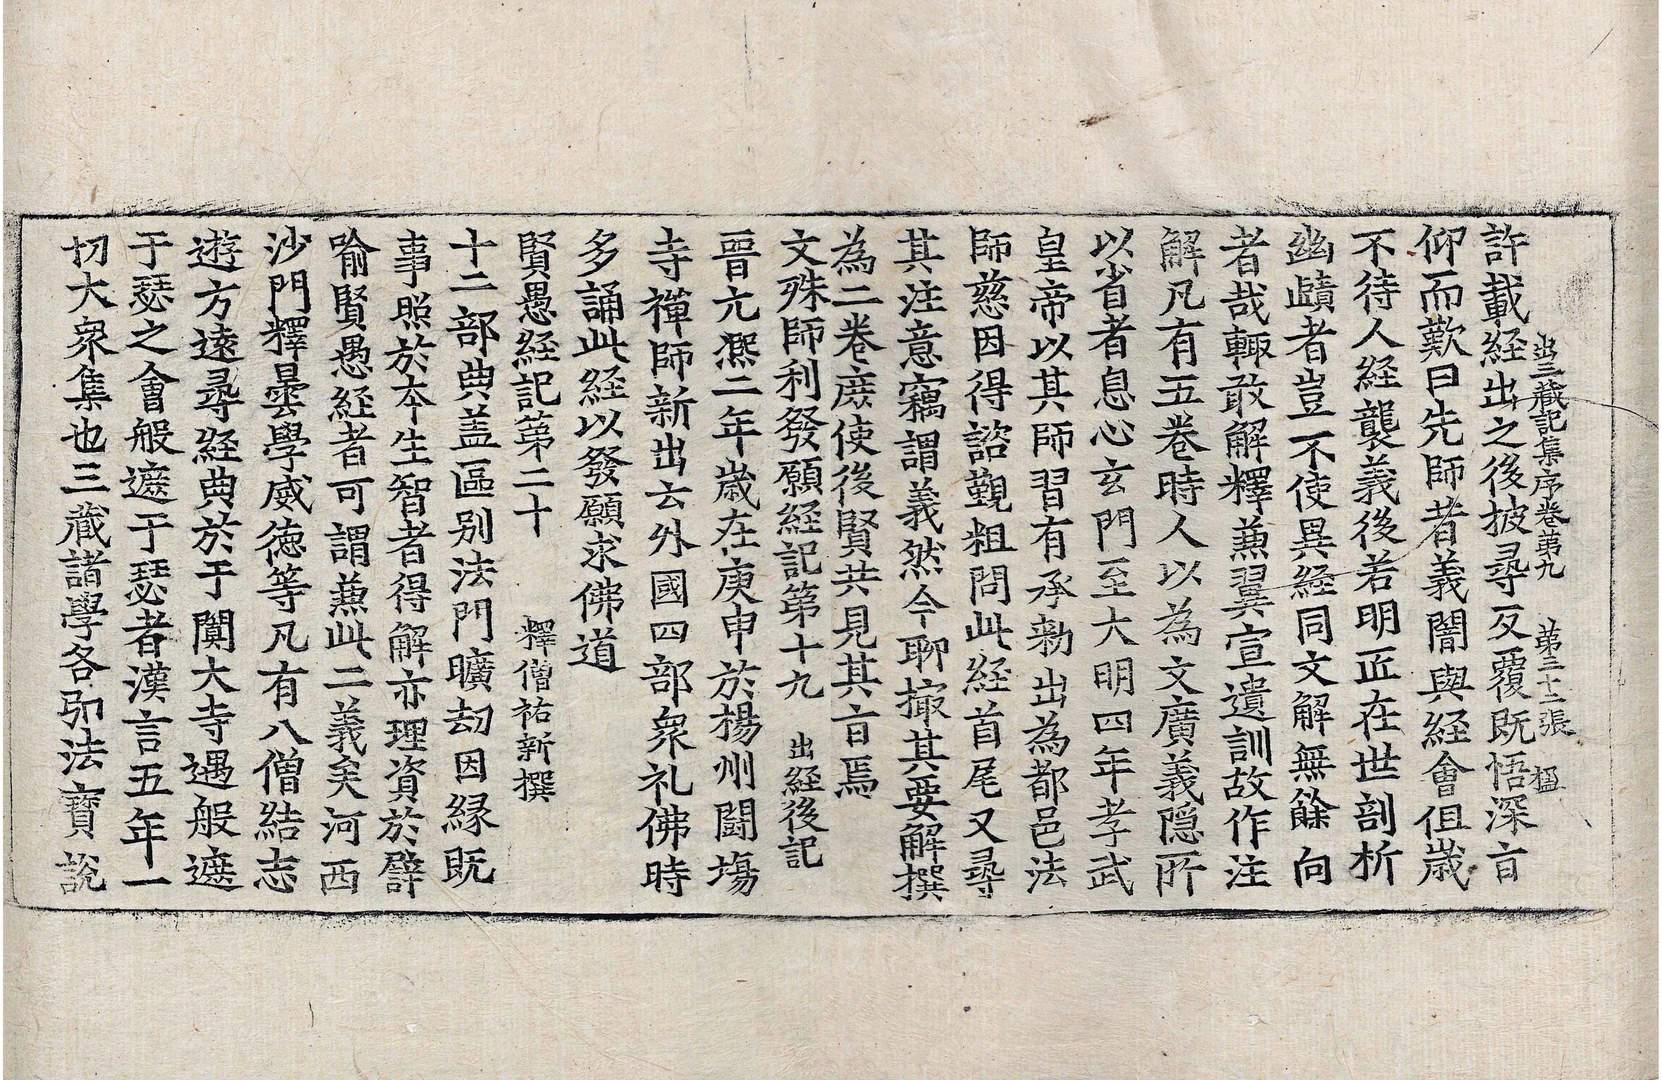 出三藏記集序卷第九 第三十二張 楹
許載経出之後披尋反覆既悟深㫖
仰而歎曰先師者義闇與経會但歲
不待人経襲義後若明匠在世剖析
幽賾者豈不使異経同文解無餘向
者哉輙敢解釋兼翼宣遺訓故作注
解凡有五卷時人以為文廣義隱所
以省者息心玄門至大明四年孝武
皇帝以其師習有承勑出為都邑法
師慈因得諮覲粗問此経首尾又尋
其注意竊謂義然今聊撮其要解撰
為二卷庻使後賢共見其㫖焉
文殊師利發願経記第十九 出経後記
晉元熈二年歲在庚申於楊州鬪塲
寺禪師新出云外國四部衆礼佛時
多誦此経以發願求佛道
賢愚経記第二十 釋僧祐新撰
十二部典盖區别法門曠劫因緣既
事照於本生智者得解亦理資於譬
喻賢愚経者可謂兼此二義矣河西
沙門釋曇學威德等凡有八僧結志
遊方遠尋経典於于闐大寺遇般遮
于瑟之會般遮于瑟者漢言五年一
切大衆集也三藏諸學各弘法寶說